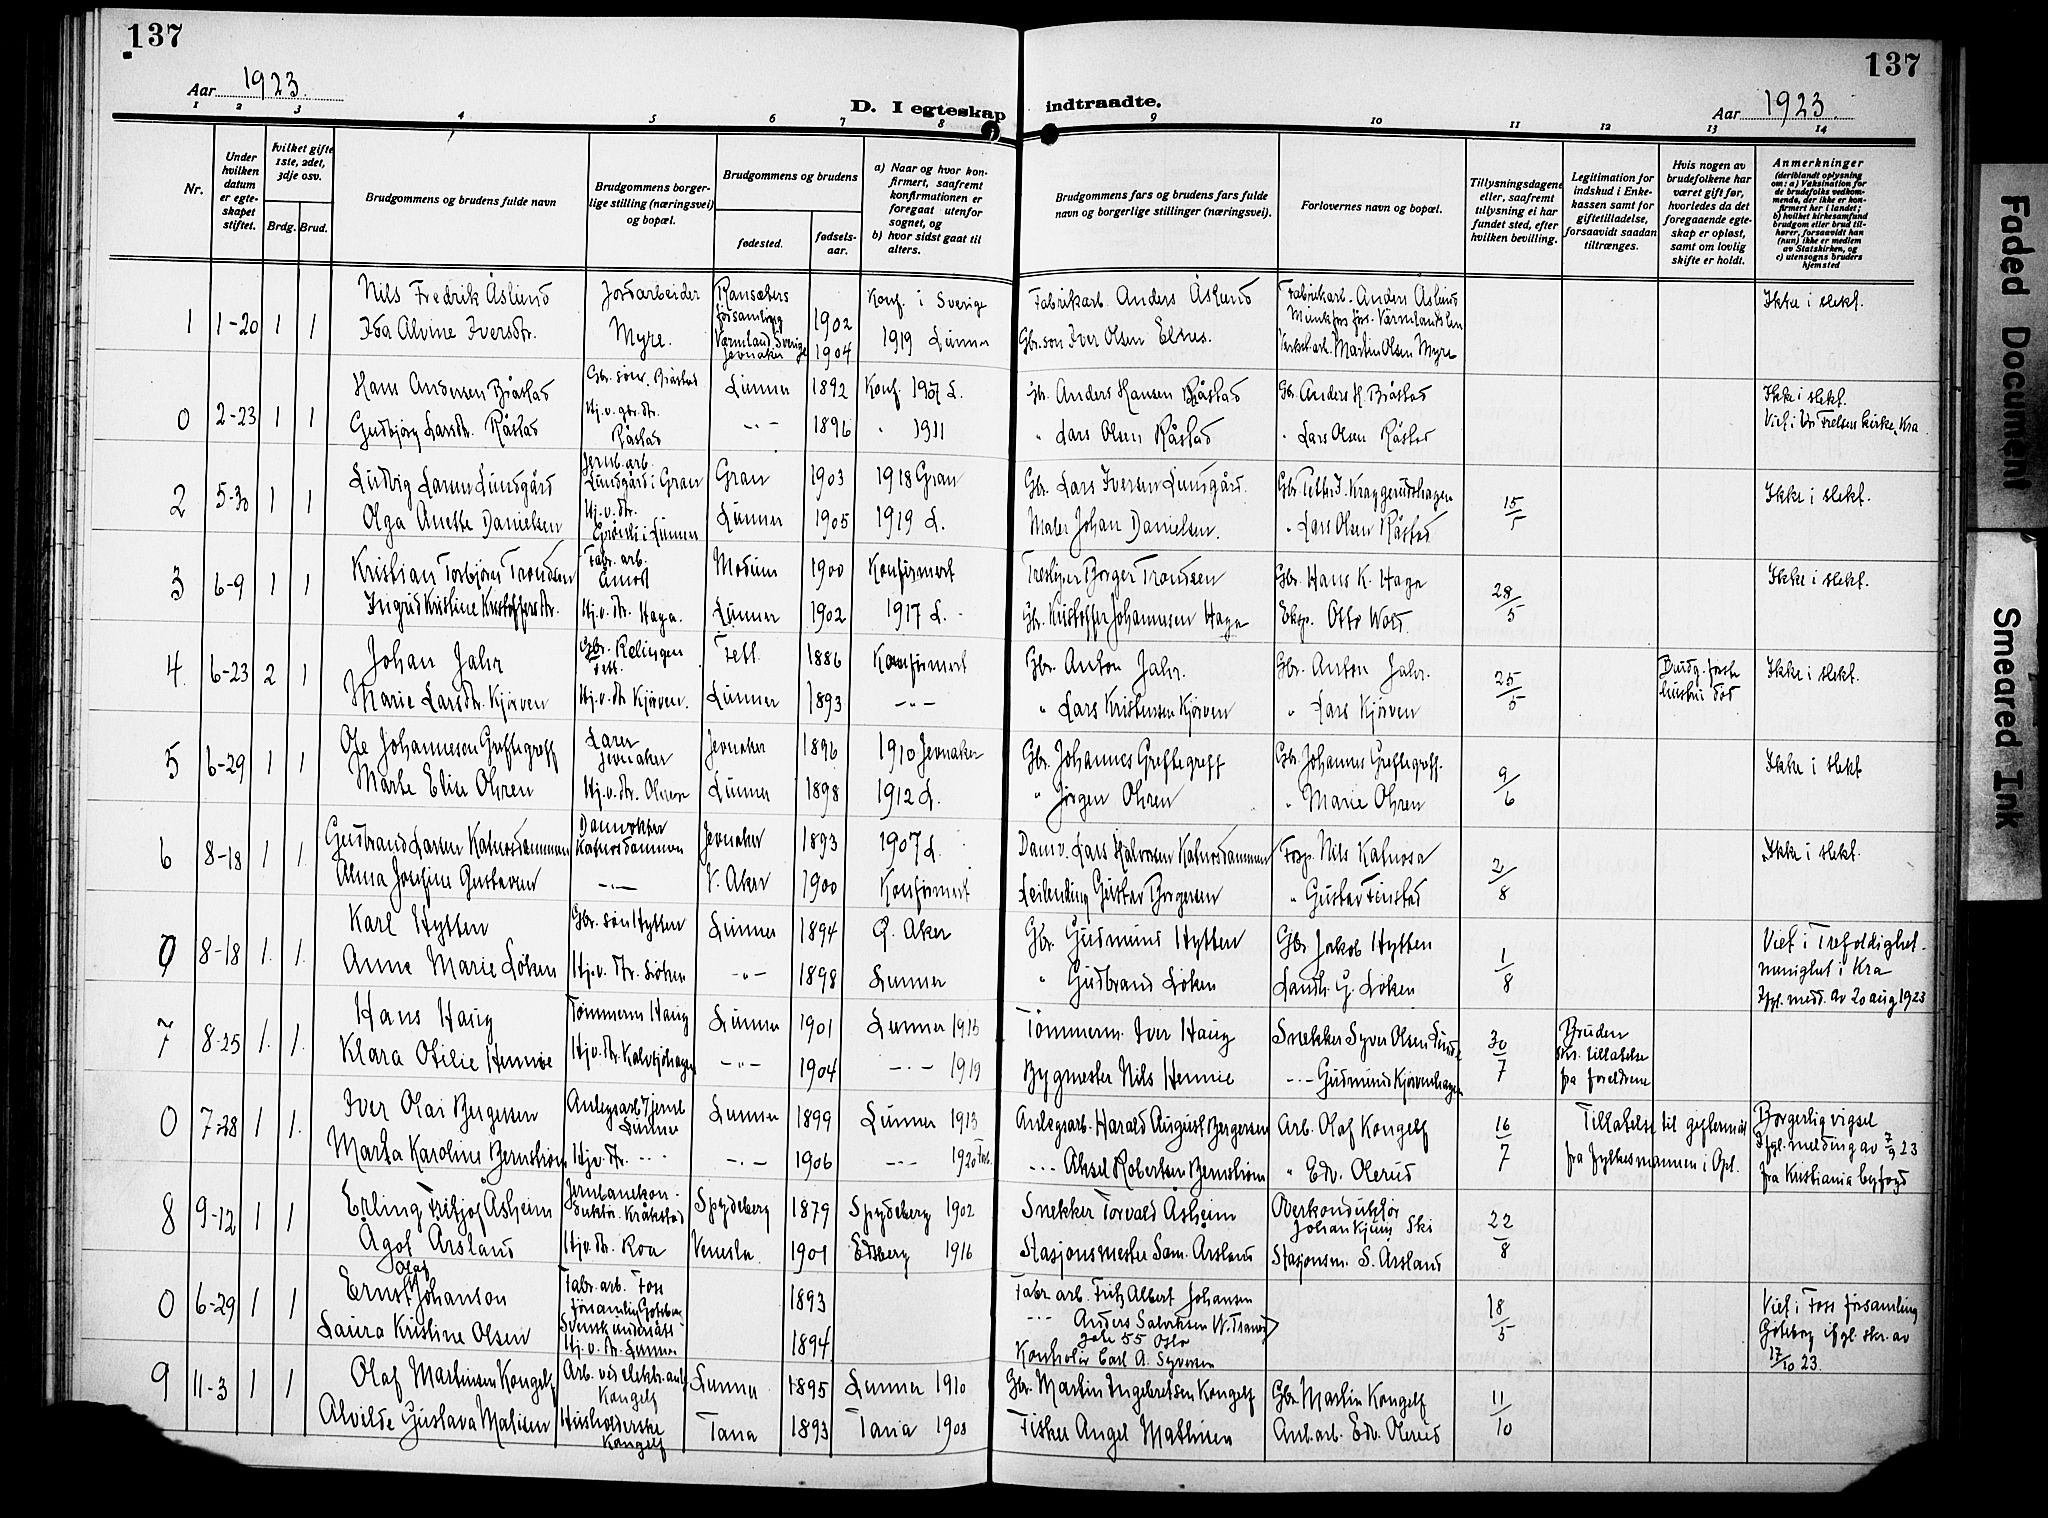 137
137
Aar 1923.
D. I egteskap indtraadte.
Aar 1923.
1 2 3 4 5 6 7 8 9 10 11 12 13 14
Nr.
Under hvilken datum er egteskapet stiftet.
hvilket gifte 1ste, 2det, 3dje osv.
Brdg. Brud.
Brudgommens og brudens fulde navn
Brudgommens borgerlige stilling (næringsvei) og bopæl.
Brudgommens og brudens
fødested.
fødselsaar.
a) Naar og hvor konfirmert, saafremt konfirmationen er foregaat utenfor sognet, og
b) hvor sidst gaat til alters.
Brudgommens fars og brudens fars fulde navn og borgerlige stillinger (næringsvei).
Forlovernes navn og bopæl.
Tillysningsdagene eller, saafremt tillysning ei har fundet sted, efter hvilken bevilling.
Legitimation for indskud i Enkekassen samt for giftetilladelse, forsaavidt saadan tiltrænges.
Hvis nogen av brudefolkene har været gift før, hvorledes da det foregaaende egteskap er opløst, samt om lovlig skifte er holdt.
Anmerkninger (deriblandt oplysning om: a) Vaksination for de brudefolks vedkommende, der ikke er konfirmert her i landet; b) hvilket kirkesamfund brudgom eller brud tilhører, forsaavidt han (hun) ikke er medlem av Statskirken, og c) utensogns bruders hjemsted
1 1-20 1 1
Nils Fredrik Åslund Jordarbeider Ransäters församling Värmland Sverige 1902 Konf. i Sverige Fabrikarb. Anders Åslund Fabrikarb. Anders Åslund Munkfors Värmlandslen Ikke i slekt.
Ida Alvine Iversdtr. Myre. Jevnaker 1904 1919 Lunner Gbr.son Iver Olsen Elsnes. Martin Olsen Myre
0 2-23 1 1
Hans Andersen Bråstad Gbr. sønn Bråstad Lunner 1892 Konf. 1907 L. Gbr. Anders Hansen Bråstad Gbr. Anders H. Bråstad Ikke i slekt.
Gudbjørg Larsdtr. Råstad Hj.v. gbr.dtr. Råstad -"- 1896 " 1911 " Lars Olsen Råstad " Lars Olsen Råstad Viet i Vor Frelsers kirke, Kra
2 5-30 1 1
Ludvig Larsen Lundgård Jernb.arb. Lundgård i Gran Gran 1903 1918 Gran Gbr. Lars Iversen Lundgård. Gbr. Petter J. Kraggerudshagen 15/5 Ikke i slekt.
Olga Anette Danielsen Hj.v. dtr. i Lunner Lunner 1905 1919 L. Maler Johan Danielsen. " Lars Olsen Råstad
3 6-9 1 1
Kristian Torbjørn Trondsen Fabr. arb. Åmot Modum 1900 Konfirmert Tresliper Borger Trondsen Gbr. Hans K. Haga 28/5 Ikke i slekt.
Ingrid Kristine Kristoffersdtr. Hj.v. dtr. Haga. Lunner 1902 1917 L. Gbr. Kristoffer Johannesen Haga Eksp. Otto Wold.
4 6-23 2 1
Johan Jahr Gbr. Relingen Fett. Fett. 1886 Konfirmert Gbr. Anton Jahr. Gbr. Anton Jahr. 25/5 Brudg. første hustru død Ikke i slekt.
Marie Larsdtr. Kjørven Hj.v. dtr Kjørven. Lunner 1893 -"- " Lars Kristensen Kjørven " Lars Kjørven
5 6-29 1 1
Ole Johannesen Greftegreff Lærer Jevnaker Jevnaker 1896 1910 Jevnaker Gbr. Johannes Greftegreff Gbr. Johannes Greftegreff. 9/6 Ikke i slekt
Marte Elise Ohren Hj.v. dtr. Ohren Lunner 1898 1912 L. " Jørgen Ohren " Marie Ohren
6 8-18 1 1
Gudbrand Larsen Katnosdammen Damvokter Katnosdammen Jevnaker 1893 1907 L. Damv. Lars Halvorsen Katnosdammen Forp. Nils Katnosa 2/8 Ikke i slekt.
Alma Josefine Gustavsen -"- V. Aker 1900 Konfirmert Leilending Gustav Borgersen " Gustav Finstad
0 8-18 1. 1.
Karl Hytten Gbr. søn Hytten Lunner 1894 Ø. Aker Gbr. Gudmund Hytten Gbr Jakob Hytten 1/8 Viet i Trefoldighet-menighet i Kra
Anne Marie Løken Hj.v. dtr. Løken -"- 1898 Lunner " Gudbrand Løken Landh. G. Løken Ifgl. medd. av 20 aug 1923
7 8-25 1. 1.
Hans Haug Tømmerm Haug Lunner 1901 Lunner 1915 Tømmerm. Iver Haug Snekker Syver Olsen Lunde 30/7 Bruden skr. tillatelse fra foreldrene
Klara Otilie Hennie Hj.v. dtr. Kalvsjøhagen -"- 1904 -"- 1919 Bygmester Nils Hennie -"- Gudmund Kjørvenhagen
0 7-28 1 1.
Iver Olai Bergersen Anlegsarb v/jernb Lunner Lunner 1899 Lunner 1913 Anlegsarb. Harald August Bergersen Arb. Olaf Kongelf 16/7 Tillatelse til giftermål fra fylkesmannen i Opl. Borgerlig vigsel Ifgl. melding av 7/9 23 fra Kristiania byfogd
Marta Karoline Bernstrøm Hj.v. dtr. -"- -"- 1906 -"- 1920 -"- Aksel Robertsen Bernstrøm " Edv. Olerud
8 9-12 1 1
Erling Fritjof Åsheim Jernbanekonduktør. Kråkstad Spydeberg 1879 Spydeberg 1902 Snekker Torvald Åsheim Overkonduktør Johan Kjus Ski 22/8
Ågot Årsland Hj.v. dtr. Roa Venesla. 1901 Eidsberg 1916 Stasjonsmester Sam. Arsland Stasjonsm. S. Arsland
0 6-29 1 1
Ernst Olof Johanson Fabr.arb. Foss församling Göteborg Svensk undersått 1893 Fabr arb. Fritz Albert Johansen 18/5 Viet i Foss församling Göteborg ifgl. skr. av 17/10 23.
Laura Kristine Olsen Hj. v. dtr. Lunner 1894 -"- Anders gate 55 Oslo
Kontrolør Carl A. Syversen
9 11-3 1 1
Olaf Martinsen Kongelf Arb. ved elektr. anl. Kongelf Lunner 1895 Lunner 1910 Gbr. Martin Ingebretsen Kongelf Gbr Martin Kongelf 11/10
Alvilde Gustava Matisen Husholderske Kongelf Tana 1893 Tana 1908 Fisker Angel Mathisen Anl.arb. Edv. Olerud
Faded Document
Smeared Ink